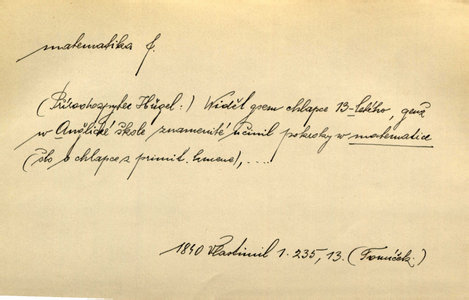 matematika f.
(Přírodozpytec Hügel:) Widěl gsem chlapce 13-letého, genž
w Anglické škole znamenité učinil pokroky w matematice
(šlo o chlapce z primit. kmene), ....
1840 Vlastimil 1.235, 13. (Tomíček.)